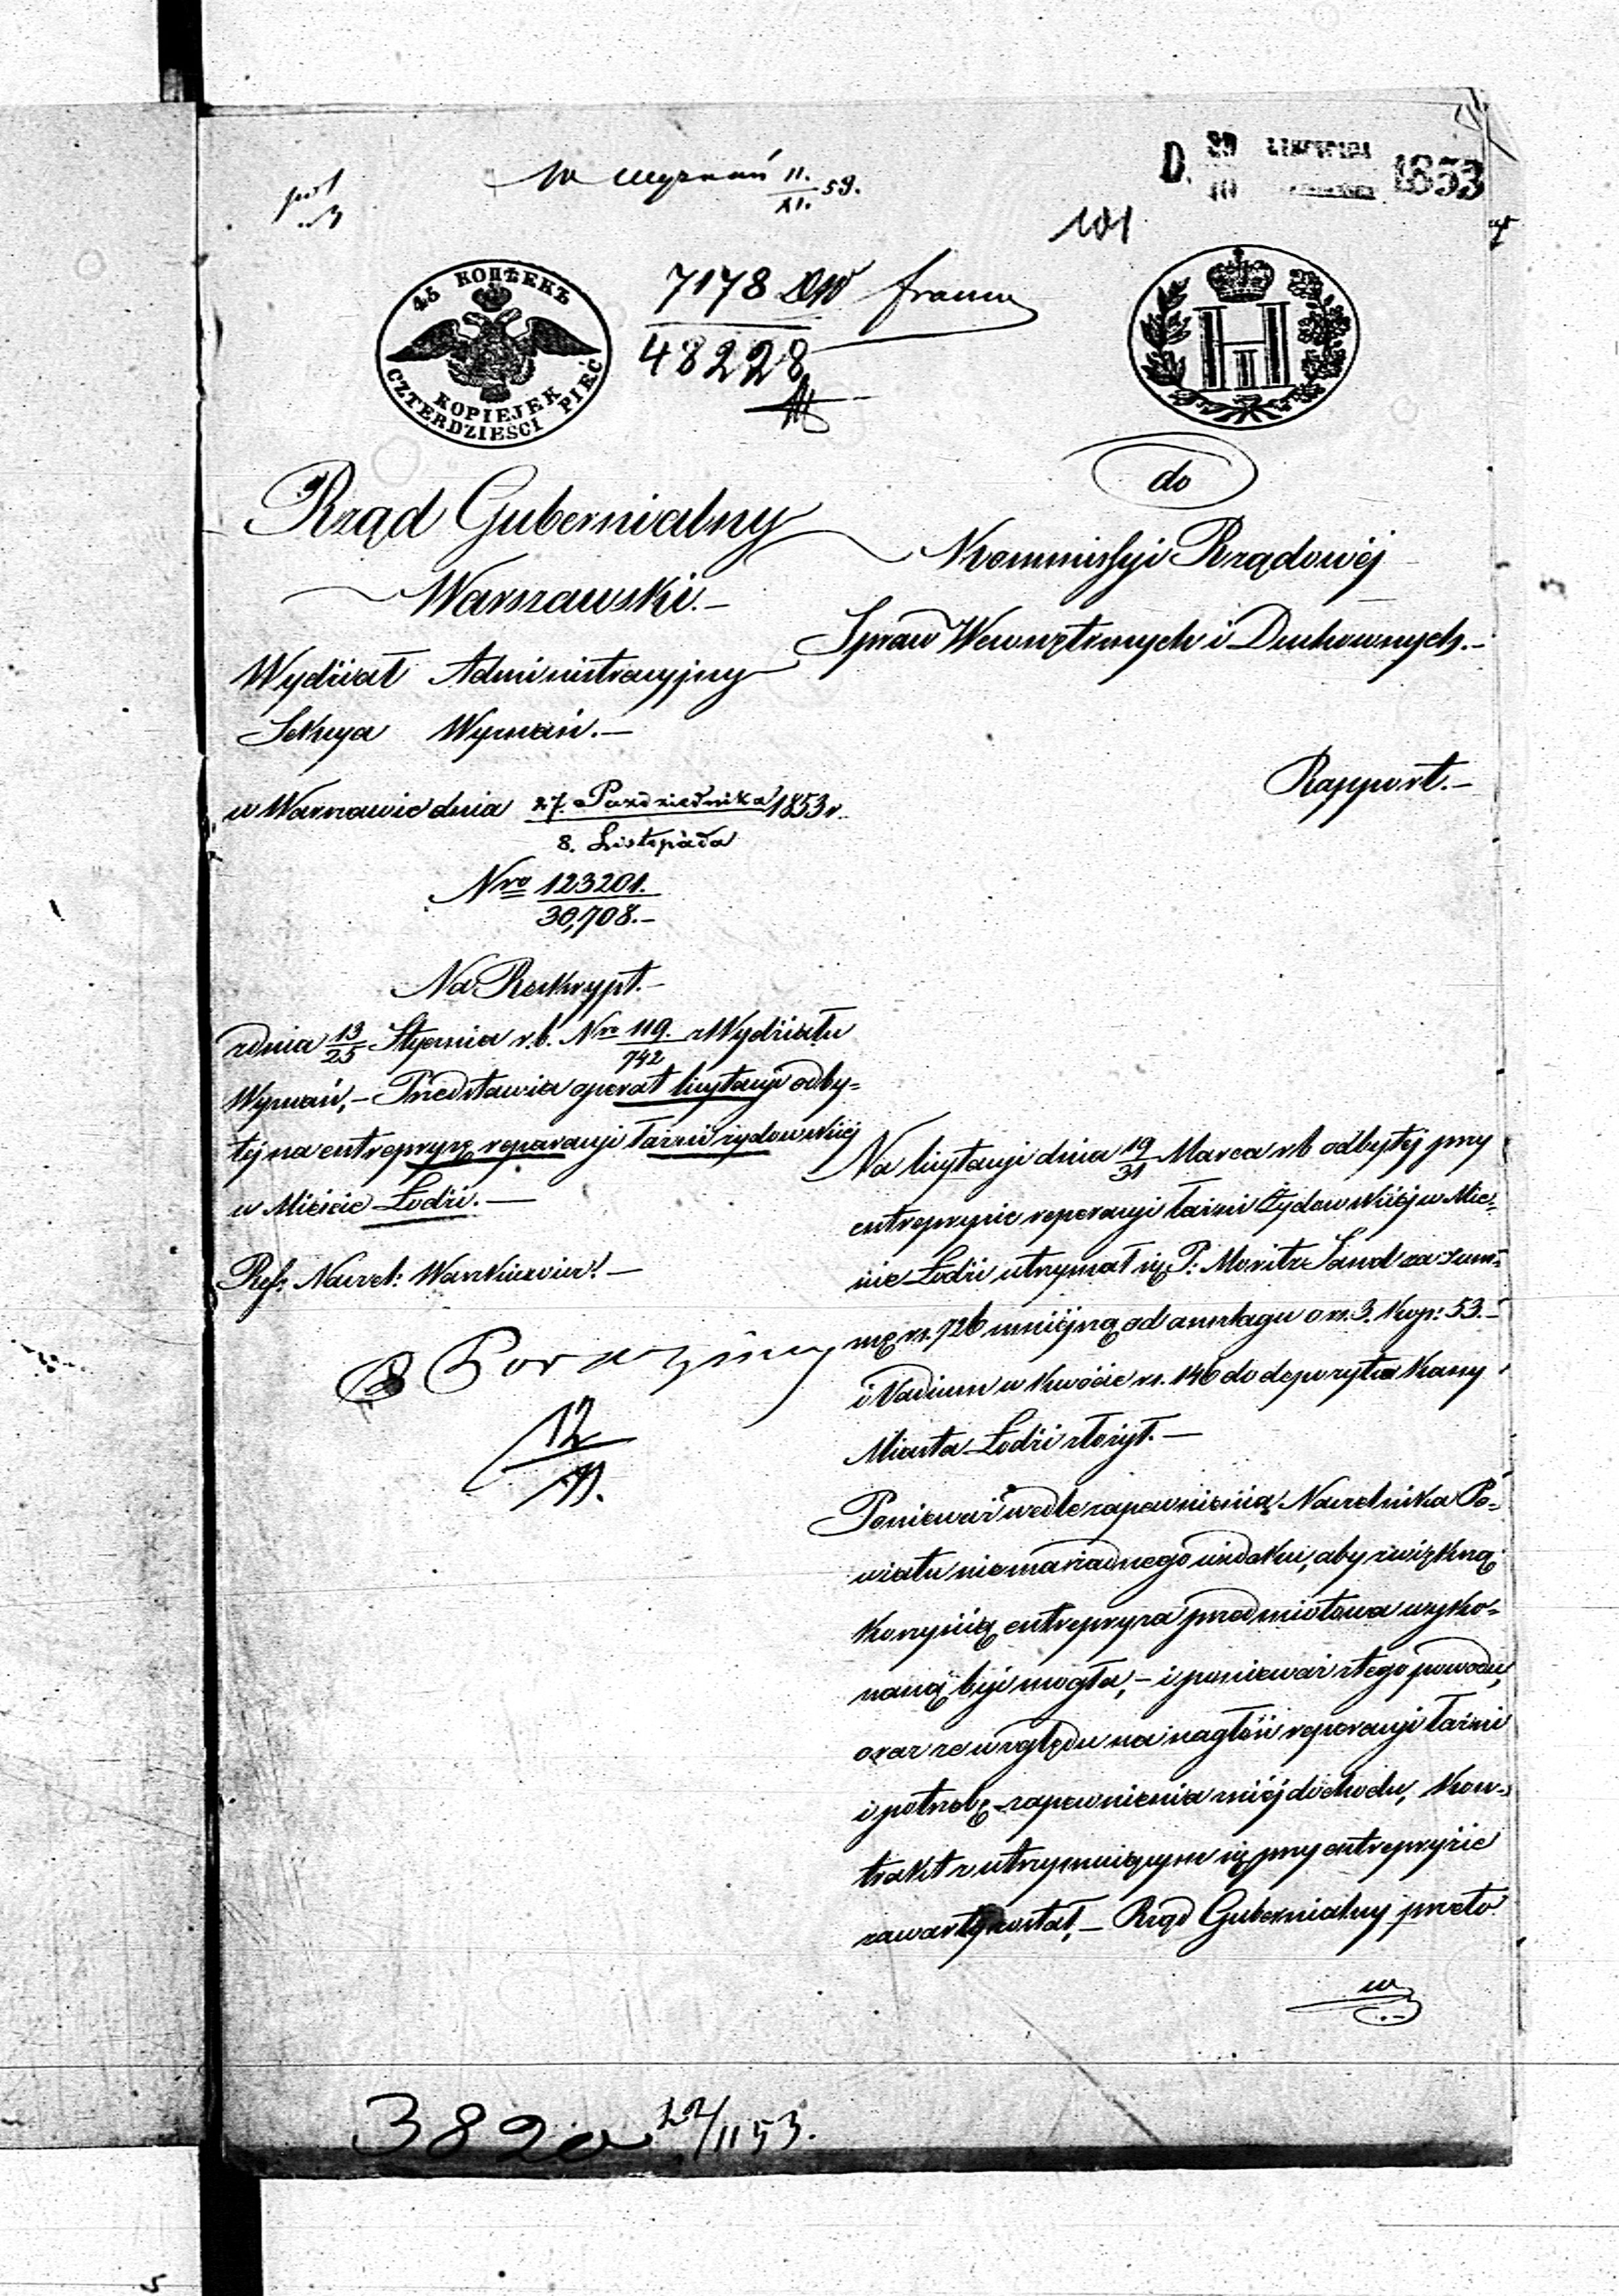 W Wyznań 11./XI. 53.
D. 29 LISTOPADA 1853
10
101
45 КОПѢЕКЪ
KOPIEJEK
CZTERDZIEŚCI PIEĆ
7178 DW franco
48228
do
Rząd Gubernialny
Warszawski.-
Wydział Administracyjny
Sekcya Wyznań.-
w Warszawie dnia 27. Października / 8. Listopada 1853 r.
Nro 123201. / 30,708.-
Na Reskrypt.-
z dnia 13/25 Stycznia r.b. Nro 119./742 z Wydziału
Wyznań,- Przedstawia operat licytacyi odby=
tej na entrepryzę reparacyi łaźni żydowskiéj
w Mieście Łodzi.-
Ref: Naczel:
12/11.
Kommissyi Rządowéj
Spraw Wewnętrznych i Duchownych.-
Rapport.-
Na licytacyi dnia 19/31 Marca r b odbytéj przy
entrepryzie reperacyi łaźni Żydowskiéj w Mie=
ście Łodzi utrzymał się P: Moritz Sand za sum=
mę rs. 726 mniéjszą od anszlagu o rs. 3. kop: 53.-
i Vadium w kwocie rs. 146 do depozytu Kassy
Miasta Łodzi złożył.-
Ponieważ wedle zapewnienia Naczelnika Po=
wiatu niema żadnego widoku, aby z większą
korzyścią entrepryza przedmiotowa wyko=
naną być mogła,- i ponieważ z tego powodu,
oraz ze względu na nagłość reperacyi łaźni
i potrzebę zapewnienia z niéj dochodu, kon=
trakt z utrzymującym się przy entrepryzie
zawarty został,- Rząd Gubernialny przeto
382 22/11 53.